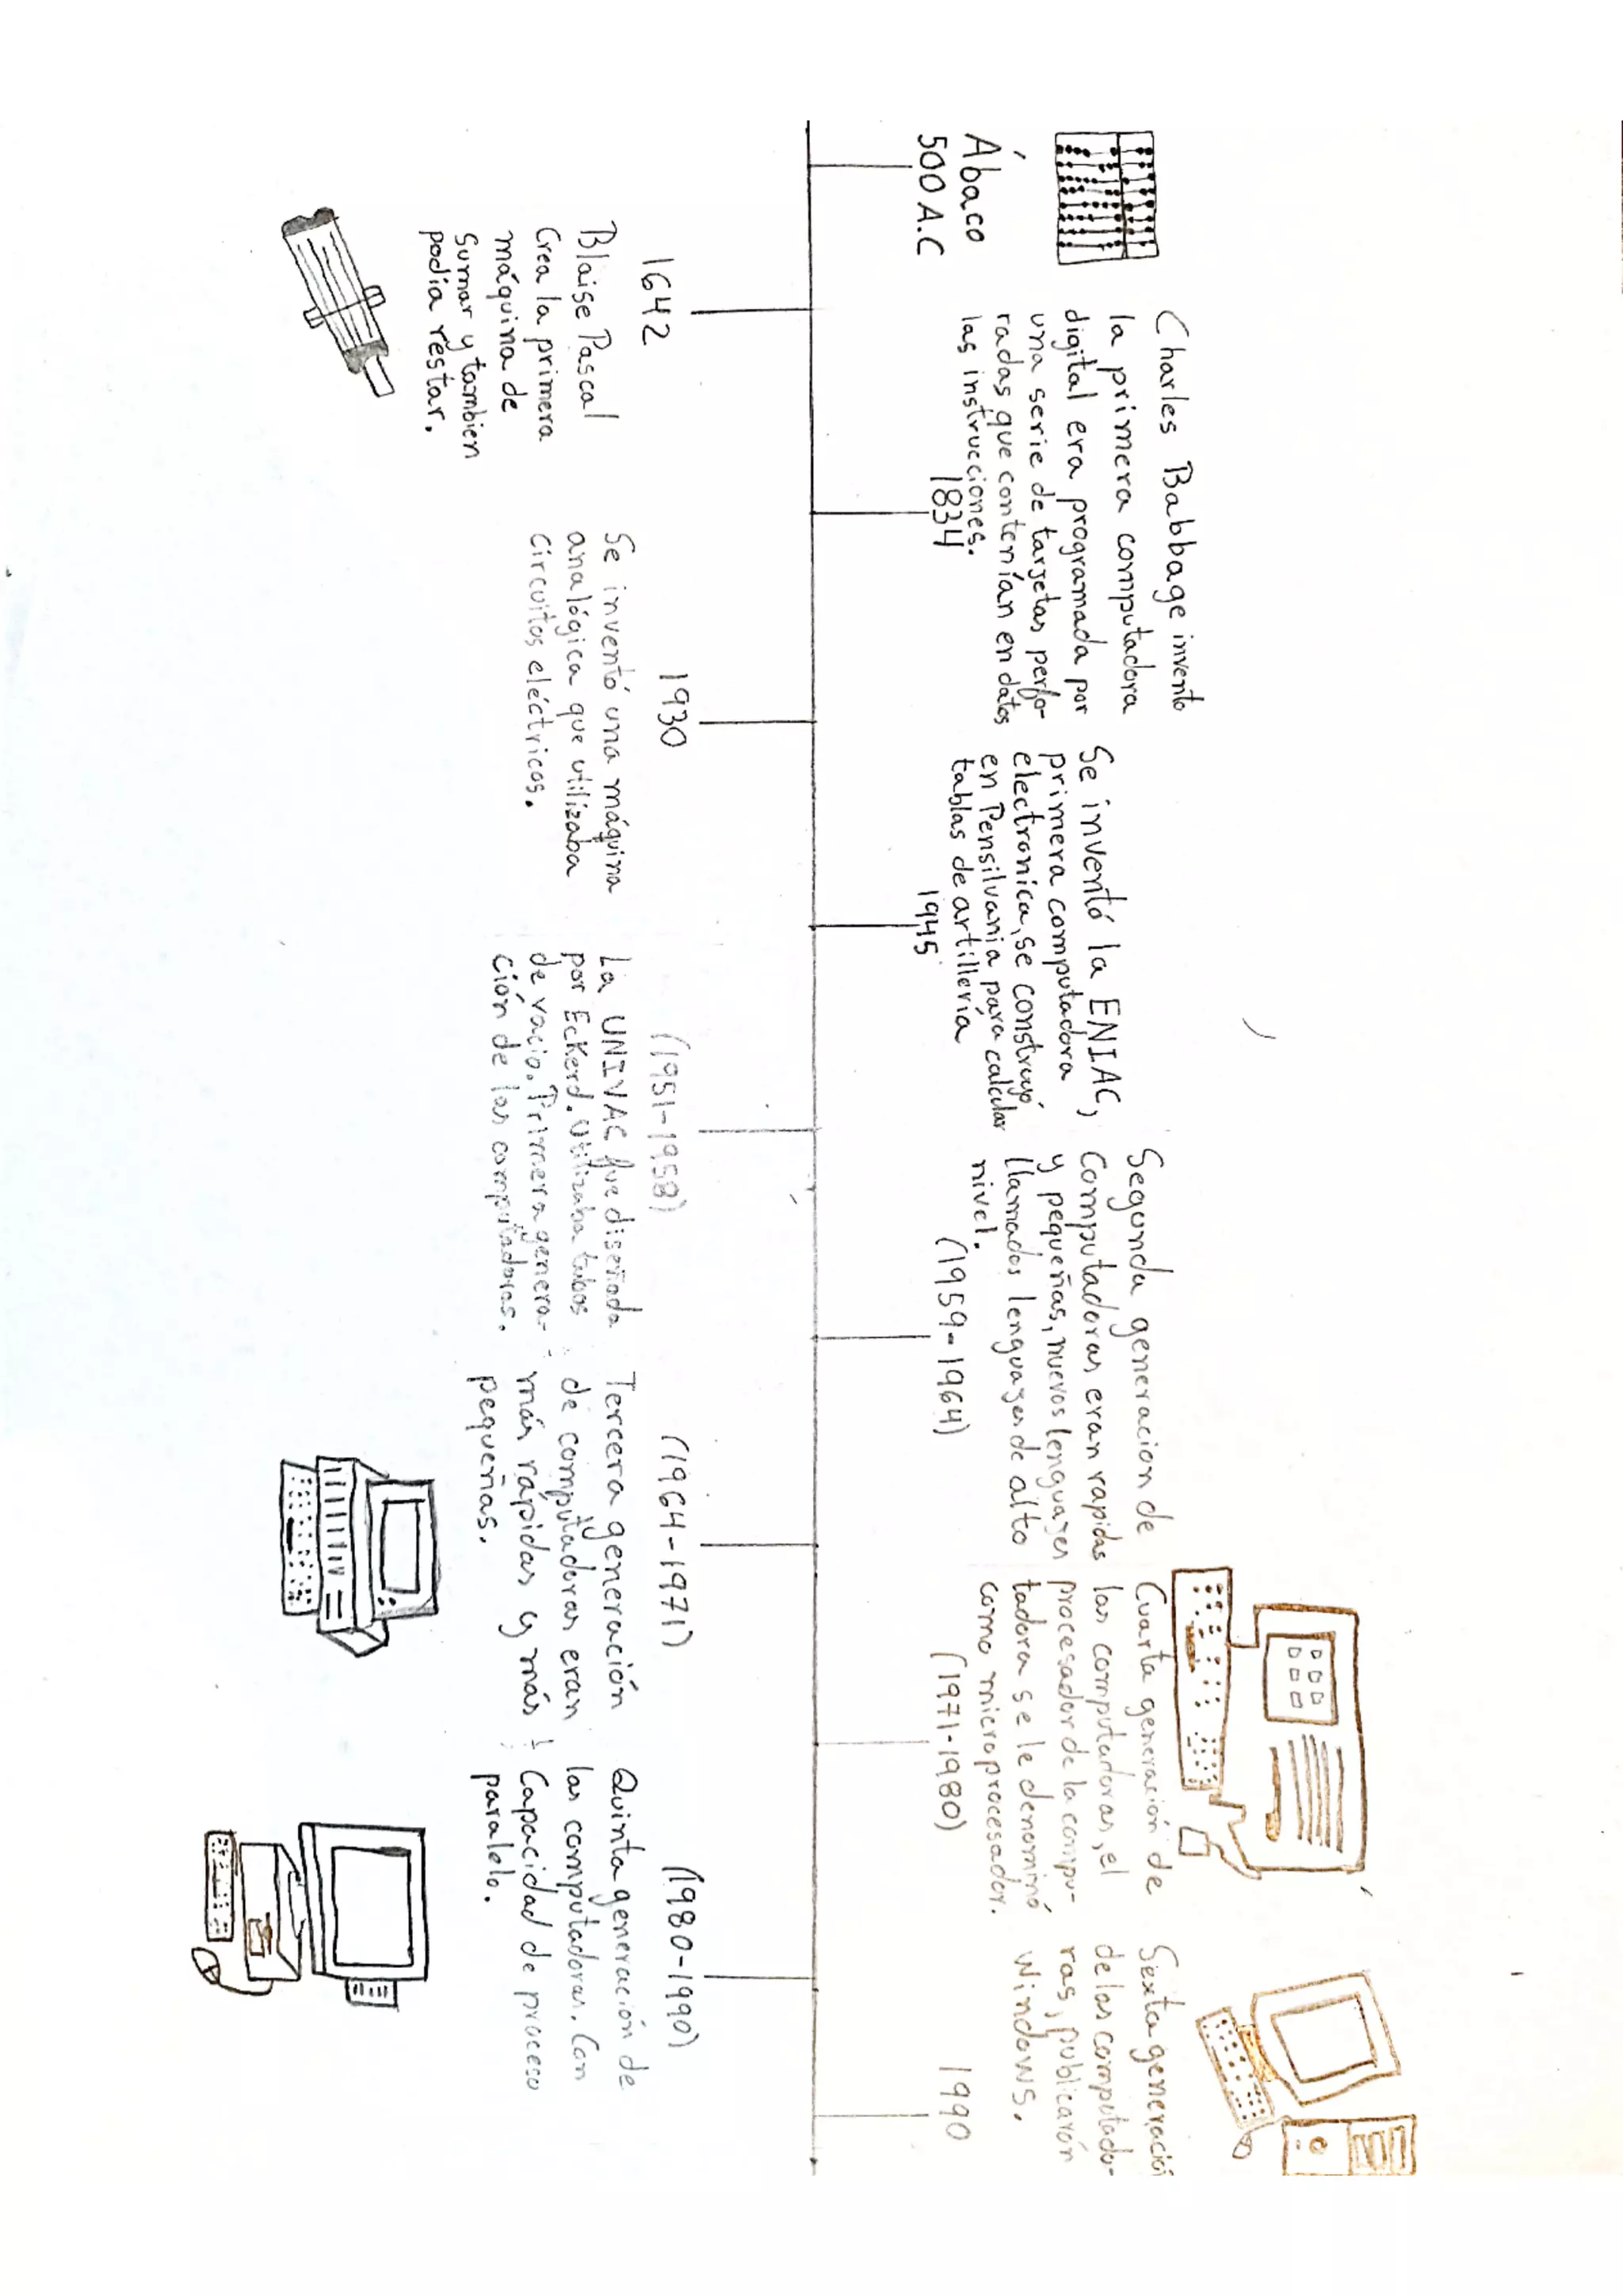 Ábaco
500 A.C
1642
Blaise Pascal
Crea la primera
máquina de
Sumar y tambien
podia restar.
Charles Babbage invento
la primera computadora
digital era programada por
una serie de tarjetas perfo-
radas que contenían en datos
las instrucciones.
1834
1930
Se inventó una máquina
analógica que utilizaba
circuitos eléctricos.
Se inventó la ENIAC,
primera computadora
electronica, se construyó
en Pensilvania para calcular
tablas de artillería
1945
(1951-1958)
La UNIVAC fue diseñada
por Eckerd. Utilizaba tubos
de vacio. Primera genera-
ción de las computadoras.
Segunda generacion de
Computadoras eran rapidas
y pequeñas, nuevos lenguajes
llamados lenguajes de alto
nivel.
(1959-1964)
(1964-1971)
Tercera generación
de computadoras eran
más rápidas y más
pequeñas.
Cuarta generación de
las computadoras, el
procesador de la compu-
tadora se le denominó
como microprocesador.
(1971-1980)
(1980-1990)
Quinta generación de
las computadoras. Con
Capacidad de proceso
paralelo.
Sexta generación
de las computado-
ras, publicarón
windows.
1990